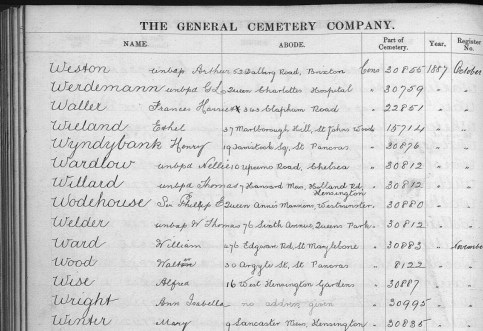 THE GENERAL CEMETERY COMPANY.
NAME. ABODE. Part of Cemetery. Year. Register No.
Weston unbap Arthur 52 Dallberg Road, Brixton Cons 30855 1887 October
Werdemann unbpd G L Queen Charlottes Hospital " 30759
Waller Frances Harriet 343 Clapham Road " 22851
Wieland Ethel 37 Marlborough Hill, St Johns Wood " 15714
Wyndybank Henry 19 Tavistock Sq, St Pancras " 30876
Wardlow unbpd Nellie 10 Road, Chelsea " 30812
Willard unbpd Thomas 7 Hansard Man, Holland Rd, Kensington " 30812
Wodehouse Sir Philip E Queen Anne's Mansions, Westminster " 30880
Welder unbap W Thomas 76 Sixth Avenue, Queens Park " 30812
Ward William 276 Edgware Rd, St Marylebone " 30883 November
Wood Walton 30 Argyle St, St Pancras " 8122
Wise Alfred 16 West Kensington Gardens " 30887
Wright Ann Isabella " no address given " 30995
Winter Mary 9 Lancaster Mews, Kensington " 30835